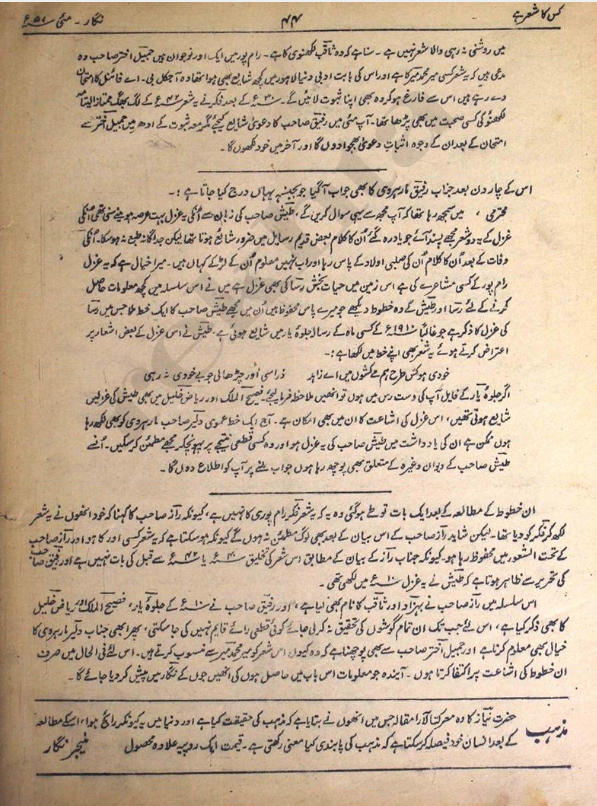 کس کا شعر ہے
۴۴
نگار ۔ مئی ۵۷ء
میں روشنی نہ رہی والا شعر نہیں ہے ۔ سنا ہے کہ وہ ثاقب لکھنوی کا ہے ۔ رام پور میں ایک اور نوجوان ہیں جمیل اختر صاحب وہ
مدعی ہیں کہ یہ شعر کسی میر محمد میر کا ہے اور اس کی بابت ادبی دنیا لاہور میں کچھ شایع بھی ہوا تھا وہ آجکل بی ۔ اے فائنل کا امتحان
دے رہے ہیں اس سے فارغ ہو کر وہ بھی اپنا ثبوت لائیں گے ۔ کے بعد فکر نے یہ شعر کے لگ بھگ ممتاز
لکھنوٗ کی کسی صحبت میں بھی پڑھا تھا ۔ آپ مئی میں رفیق صاحب کا دعویٰ شایع کیجئے مگر معہ ثبوت کے ادھر میں جمیل اختر سے
امتحان کے بعد ان کے وجوہ اثباتِ دعویٰ بھجوا دوں گا اور آخر میں خود لکھوں گا ۔
اس کے چار دن بعد جناب رفیق مارہروی کا بھی جواب آگیا جو بجنسہٖ یہاں درج کیا جاتا ہے :۔
محترمی ، میں سمجھ رہا تھا کہ آپ مجھ سے یہی سوال کریں گے ، طیش صاحب کی زبان سے انکی یہ غزل بہت عرصہ ہوا میں نے سنی تھی انکی
غزل کے یہ دو شعر مجھے پسند آئے جو یاد رہ گئے اُن کا کلام بعض قدیم رسایل میں ضرور شایع ہوتا تھا لیکن جداگانہ طبع نہ ہو سکا ۔ انکی
وفات کے بعد اُن کا کلام اُن کی صلبی اولاد کے پاس رہا اور اب نہیں معلوم اُن کے لڑکے کہاں ہیں ۔ میرا خیال ہے کہ یہ غزل
رام پور کے کسی مشاعرے کی ہے اس زمین میں حیات بخش رسا کی بھی غزل ہے میں نے اس سلسلہ میں کچھ معلومات حاصل
کرنے کے لئے رسا اور طیش کے وہ خطوط دیکھے جو میرے پاس محفوظ ہیں اُن میں مجھے طیش صاحب کا ایک خط ملا جس میں رسا
کی غزل کا ذکر ہے جو غالباً ۱۹۱۰ء کے کسی ماہ کے رسالہ جلوۂ یار میں شایع ہوئی ہے ۔ طیش نے اس غزل کے بعض اشعار پر
اعتراض کرتے ہوئے یہ شعر بھی اپنے خط میں لکھا ہے :۔
خودی ہو کس طرح ہم مے کشوں میں اے زاہد ذرا سی اور چڑھا لی جو بے خودی نہ رہی
اگر جلوۂ یار کے فایل آپ کی دست رس میں ہوں تو انھیں ملاحظہ فرما لیجئے فصیح الملک اور ریاض خلیل میں بھی طیش کی غزلیں
شایع ہوتی تھیں ، اس غزل کی اشاعت کا ان میں بھی امکان ہے ۔ آج ایک خط عموی دلیر صاحب مارہروی کو بھی لکھ رہا
ہوں ممکن ہے ان کی یادداشت میں طیش صاحب کی یہ غزل ہو اور وہ کسی قطعی نتیجے پر پہونچکر مجھے مطمئن کر سکیں ۔ اُنسے
طیش صاحب کے دیوان وغیرہ کے متعلق بھی پوچھ رہا ہوں جواب ملنے پر آپ کو اطلاع دوں گا ۔
ان خطوط کے مطالعہ کے بعد ایک بات تو طے ہو گئی وہ یہ کہ یہ شعر فکر رام پوری کا نہیں ہے ، کیونکہ راز صاحب کا کہنا کہ خود انھوں نے یہ شعر
لکھ کر فکر کو دیا تھا ۔ لیکن شاید راز صاحب کے اس بیان کے بعد بھی لوگ مطمئن نہ ہوں گے کیونکہ ہو سکتا ہے کہ یہ شعر کسی اور کا ہو اور راز صاحب
کے تحت الشعور میں محفوظ رہا ہو ۔ کیونکہ جناب راز کے بیان کے مطابق اس شعر کی تخلیق یا سے قبل کی بات نہیں ہے اور رفیق صاحب
کی تحریر سے ظاہر ہوتا ہے کہ طیش نے یہ غزل ۱۰ء میں لکھی تھی ۔
اس سلسلہ میں راز صاحب نے بہزاد اور ثاقب کا نام بھی لیا ہے ، اور رفیق صاحب نے ۱۰ء کے جلوۂ یار ، فصیح الملک اور ریاض خلیل
کا بھی ذکر کیا ہے ، اس لئے جب تک ان تمام گوشوں کی تحقیق نہ کر لی جائے کوئی قطعی رائے قایم نہیں کی جا سکتی ، پھر ابھی جناب دلیر مارہروی کا
خیال بھی معلوم کرنا ہے اور جمیل اختر صاحب سے بھی پوچھنا ہے کہ وہ کیوں اس شعر کو میر محمد میر سے منسوب کرتے ہیں ۔ اس لئے فی الحال میں صرف
ان خطوط کی اشاعت پر اکتفا کرتا ہوں ۔ آیندہ جو معلومات اس باب میں حاصل ہوں گی انھیں جون کے نگار میں پیش کر دیا جائے گا ۔
مذہب
حضرت نیاز کا وہ معرکتہ الآرا مقالہ جس میں انھوں نے بتایا ہے کہ مذہب کی حقیقت کیا ہے اور دنیا میں یہ کیونکر رائج ہوا ، اسکے مطالعہ
کے بعد انسان خود فیصلہ کر سکتا ہے کہ مذہب کی پابندی کیا معنی رکھتی ہے ۔ قیمت ایک روپیہ علاوہ محصول
منیجر نگار